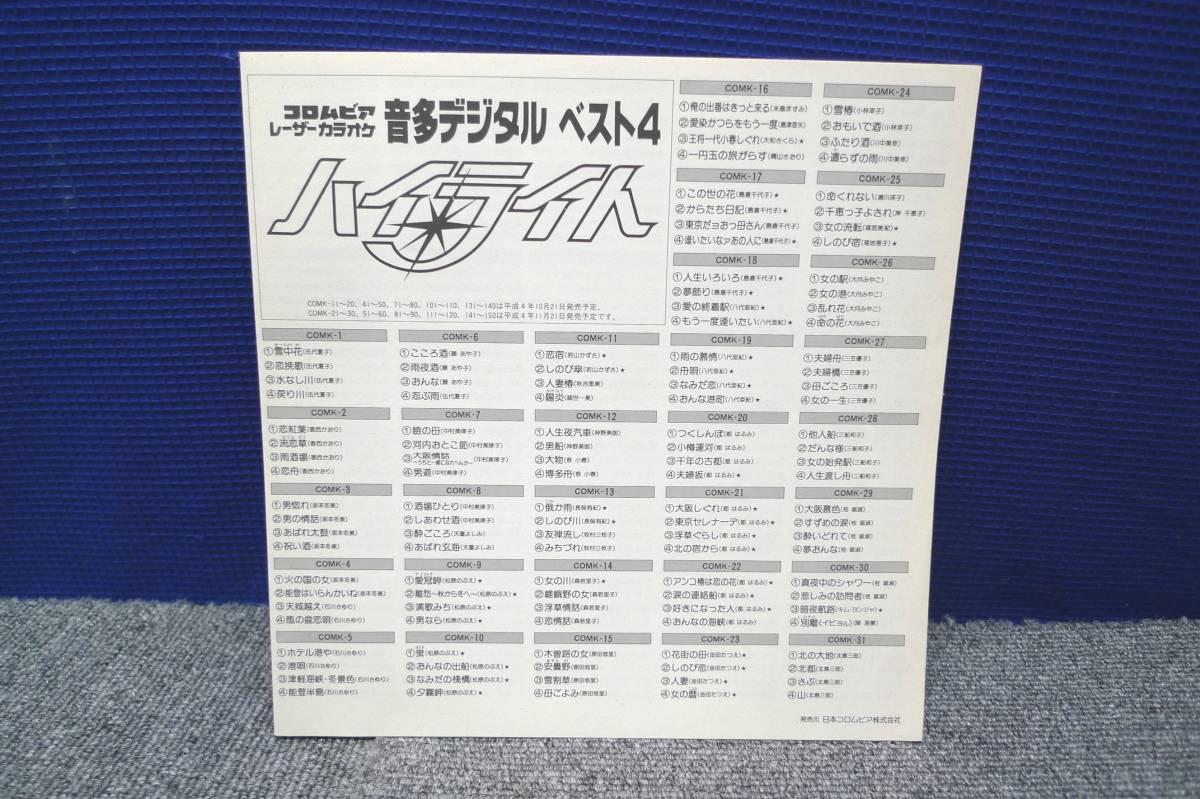 コロムビア
レーザーカラオケ
音多デジタル ベスト4
ハイライト
COMK-11〜20、41〜50、71〜80、101〜110、131〜140は平成4年10月21日発売予定。
COMK-21〜30、51〜60、81〜90、111〜120、141〜150は平成4年11月21日発売予定です。
COMK-1
①雪中花(伍代夏子)
②恋挽歌(伍代夏子)
③水なし川(伍代夏子)
④戻り川(伍代夏子)
COMK-2
①恋紅葉(香西かおり)
②流恋草(香西かおり)
③雨酒場(香西かおり)
④恋舟(香西かおり)
COMK-3
①男惚れ(坂本冬美)
②男の情話(坂本冬美)
③あばれ太鼓(坂本冬美)
④祝い酒(坂本冬美)
COMK-4
①火の国の女(坂本冬美)
②能登はいらんかいね(坂本冬美)
③天城越え(石川さゆり)
④風の盆恋唄(石川さゆり)
COMK-5
①ホテル港や(石川さゆり)
②港唄(石川さゆり)
③津軽海峡・冬景色(石川さゆり)
④能登半島(石川さゆり)
COMK-6
①こころ酒(藤 あや子)
②雨夜酒(藤 あや子)
③おんな(藤 あや子)
④忍ぶ雨(伍代夏子)
COMK-7
①瞼の母(中村美律子)
②河内おとこ節(中村美律子)
③大阪情話
〜うちと一緒になれへんか〜(中村美律子)
④男道(中村美律子)
COMK-8
①酒場ひとり(中村美律子)
②しあわせ酒(中村美律子)
③酔ごころ(天童よしみ)
④あばれ玄海(天童よしみ)
COMK-9
①愛冠岬(松原のぶえ)★
②離愁〜秋から冬へ〜(松原のぶえ)★
③演歌みち(松原のぶえ)★
④男なら(松原のぶえ)★
COMK-10
①蛍(松原のぶえ)★
②おんなの出船(松原のぶえ)★
③なみだの棧橋(松原のぶえ)★
④夕霧岬(松原のぶえ)★
COMK-11
①恋宿(若山かずさ)★
②しのび傘(若山かずさ)★
③人妻椿(秋吉恵美)
④陽炎(鏡世一美)
COMK-12
①人生夜汽車(神野美伽)
②男船(神野美伽)
③大物(島 小春)
④博多舟(島 小春)
COMK-13
①俄か雨(長保有紀)★
②しのび川(長保有紀)★
③友禅流し(牧村三枝子)
④みちづれ(牧村三枝子)
COMK-14
①女の川(森若里子)★
②嵯峨野の女(森若里子)
③浮草情話(森若里子)
④恋情話(森若里子)
COMK-15
①木曽路の女(原田悠里)
②安曇野(原田悠里)
③雪割草(原田悠里)
④母ごよみ(原田悠里)
COMK-16
①俺の出番はきっと来る(米倉ますみ)
②愛染かつらをもう一度(島津亜矢)
③王将一代小春しぐれ(大和さくら)★
④一円玉の旅がらす(晴山さおり)
COMK-17
①この世の花(島倉千代子)★
②からたち日記(島倉千代子)★
③東京だョおっ母さん(島倉千代子)★
④逢いたいなァあの人に(島倉千代子)★
COMK-18
①人生いろいろ(島倉千代子)★
②夢飾り(島倉千代子)★
③愛の終着駅(八代亜紀)★
④もう一度逢いたい(八代亜紀)★
COMK-19
①雨の慕情(八代亜紀)★
②舟唄(八代亜紀)★
③なみだ恋(八代亜紀)★
④おんな港町(八代亜紀)★
COMK-20
①つくしんぼ(都 はるみ)
②小樽運河(都 はるみ)
③千年の古都(都 はるみ)
④夫婦坂(都 はるみ)★
COMK-21
①大阪しぐれ(都 はるみ)★
②東京セレナーデ(都 はるみ)★
③浮草ぐらし(都 はるみ)★
④北の宿から(都 はるみ)★
COMK-22
①アンコ椿は恋の花(都 はるみ)★
②涙の連絡船(都 はるみ)★
③好きになった人(都 はるみ)★
④おんなの海峡(都 はるみ)★
COMK-23
①花街の母(金田たつえ)★
②しのび恋(金田たつえ)★
③人妻(金田たつえ)★
④女の暦(金田たつえ)★
COMK-24
①雪椿(小林幸子)
②おもいで酒(小林幸子)
③ふたり酒(川中美幸)
④遣らずの雨(川中美幸)
COMK-25
①命くれない(瀬川瑛子)
②千恵っ子よされ(岸 千恵子)
③女の流転(真咲美紀)★
④しのび宿(菊地恵子)★
COMK-26
①女の駅(大月みやこ)
②女の港(大月みやこ)
③乱れ花(大月みやこ)
④命の花(大月みやこ)
COMK-27
①夫婦舟(三笠優子)
②夫婦橋(三笠優子)
③母ごころ(三笠優子)
④女の一生(三笠優子)
COMK-28
①他人船(三船和子)
②だんな様(三船和子)
③女の始発駅(三船和子)
④人生渡し舟(三船和子)
COMK-29
①大阪暮色(桂 銀淑)
②すずめの涙(桂 銀淑)
③酔いどれて(桂 銀淑)
④夢おんな(桂 銀淑)
COMK-30
①真夜中のシャワー(桂 銀淑)
②悲しみの訪問者(桂 銀淑)
③暗夜航路(キム・ヨンジャ)★
④別離(イビョル)
COMK-31
①北の大地(北島三郎)
②北都(北島三郎)
③さぶ(北島三郎)
④山(北島三郎)
発売元 日本コロムビア株式会社